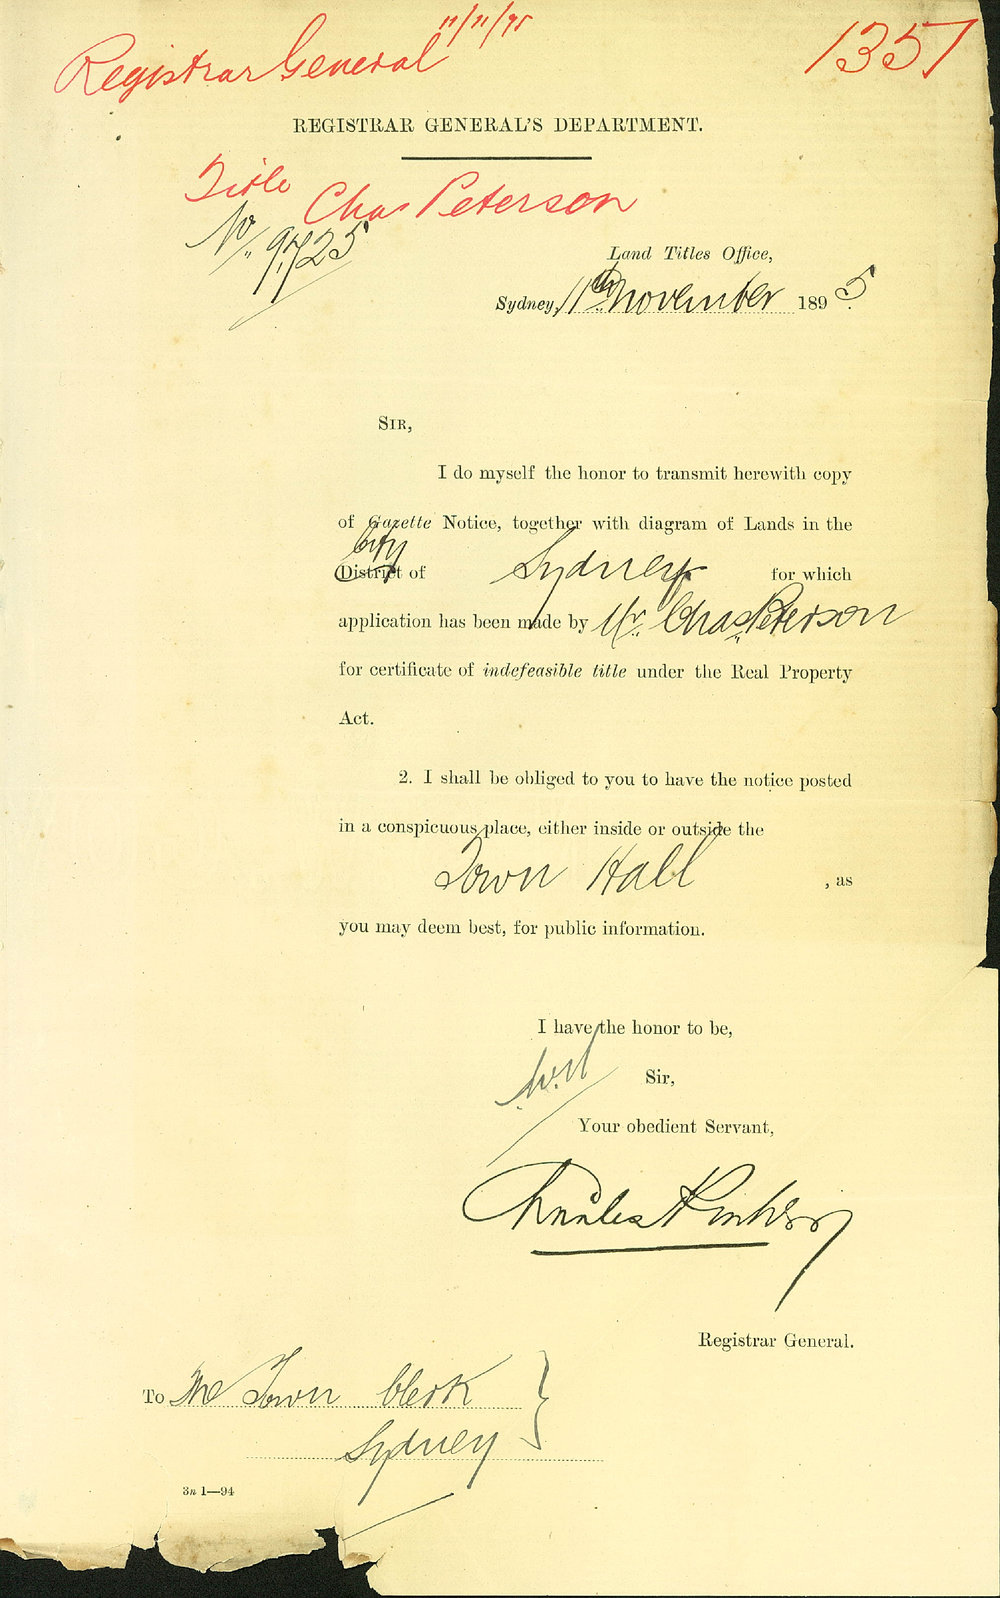 Registrar General 11/11/95
1357
REGISTRAR GENERAL'S DEPARTMENT.
Title Chas Peterson
No. 9,725
Land Titles Office,
Sydney, 11th November 1895
SIR,
I do myself the honor to transmit herewith copy
of Gazette Notice, together with diagram of Lands in the
City
District of Sydney for which
application has been made by Mr. Chas. Peterson
for certificate of indefeasible title under the Real Property
Act.
2. I shall be obliged to you to have the notice posted
in a conspicuous place, either inside or outside the
Town Hall , as
you may deem best, for public information.
I have the honor to be,
Sir,
Your obedient Servant,
Charles
Registrar General.
To The Town Clerk
Sydney
3n 1—94